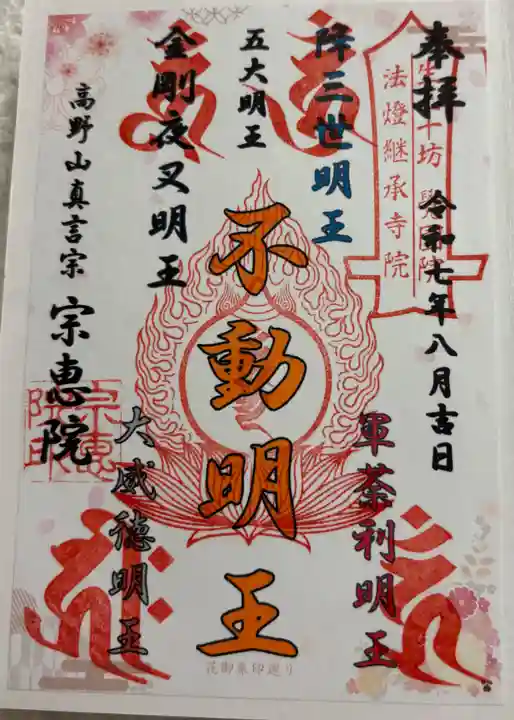 奉拝
令和七年八月吉日
法燈継承寺院
降三世明王
軍荼利明王
五大明王
不動明王
金剛夜叉明王
大威徳明王
高野山真言宗
宗恵院
花御朱印巡り